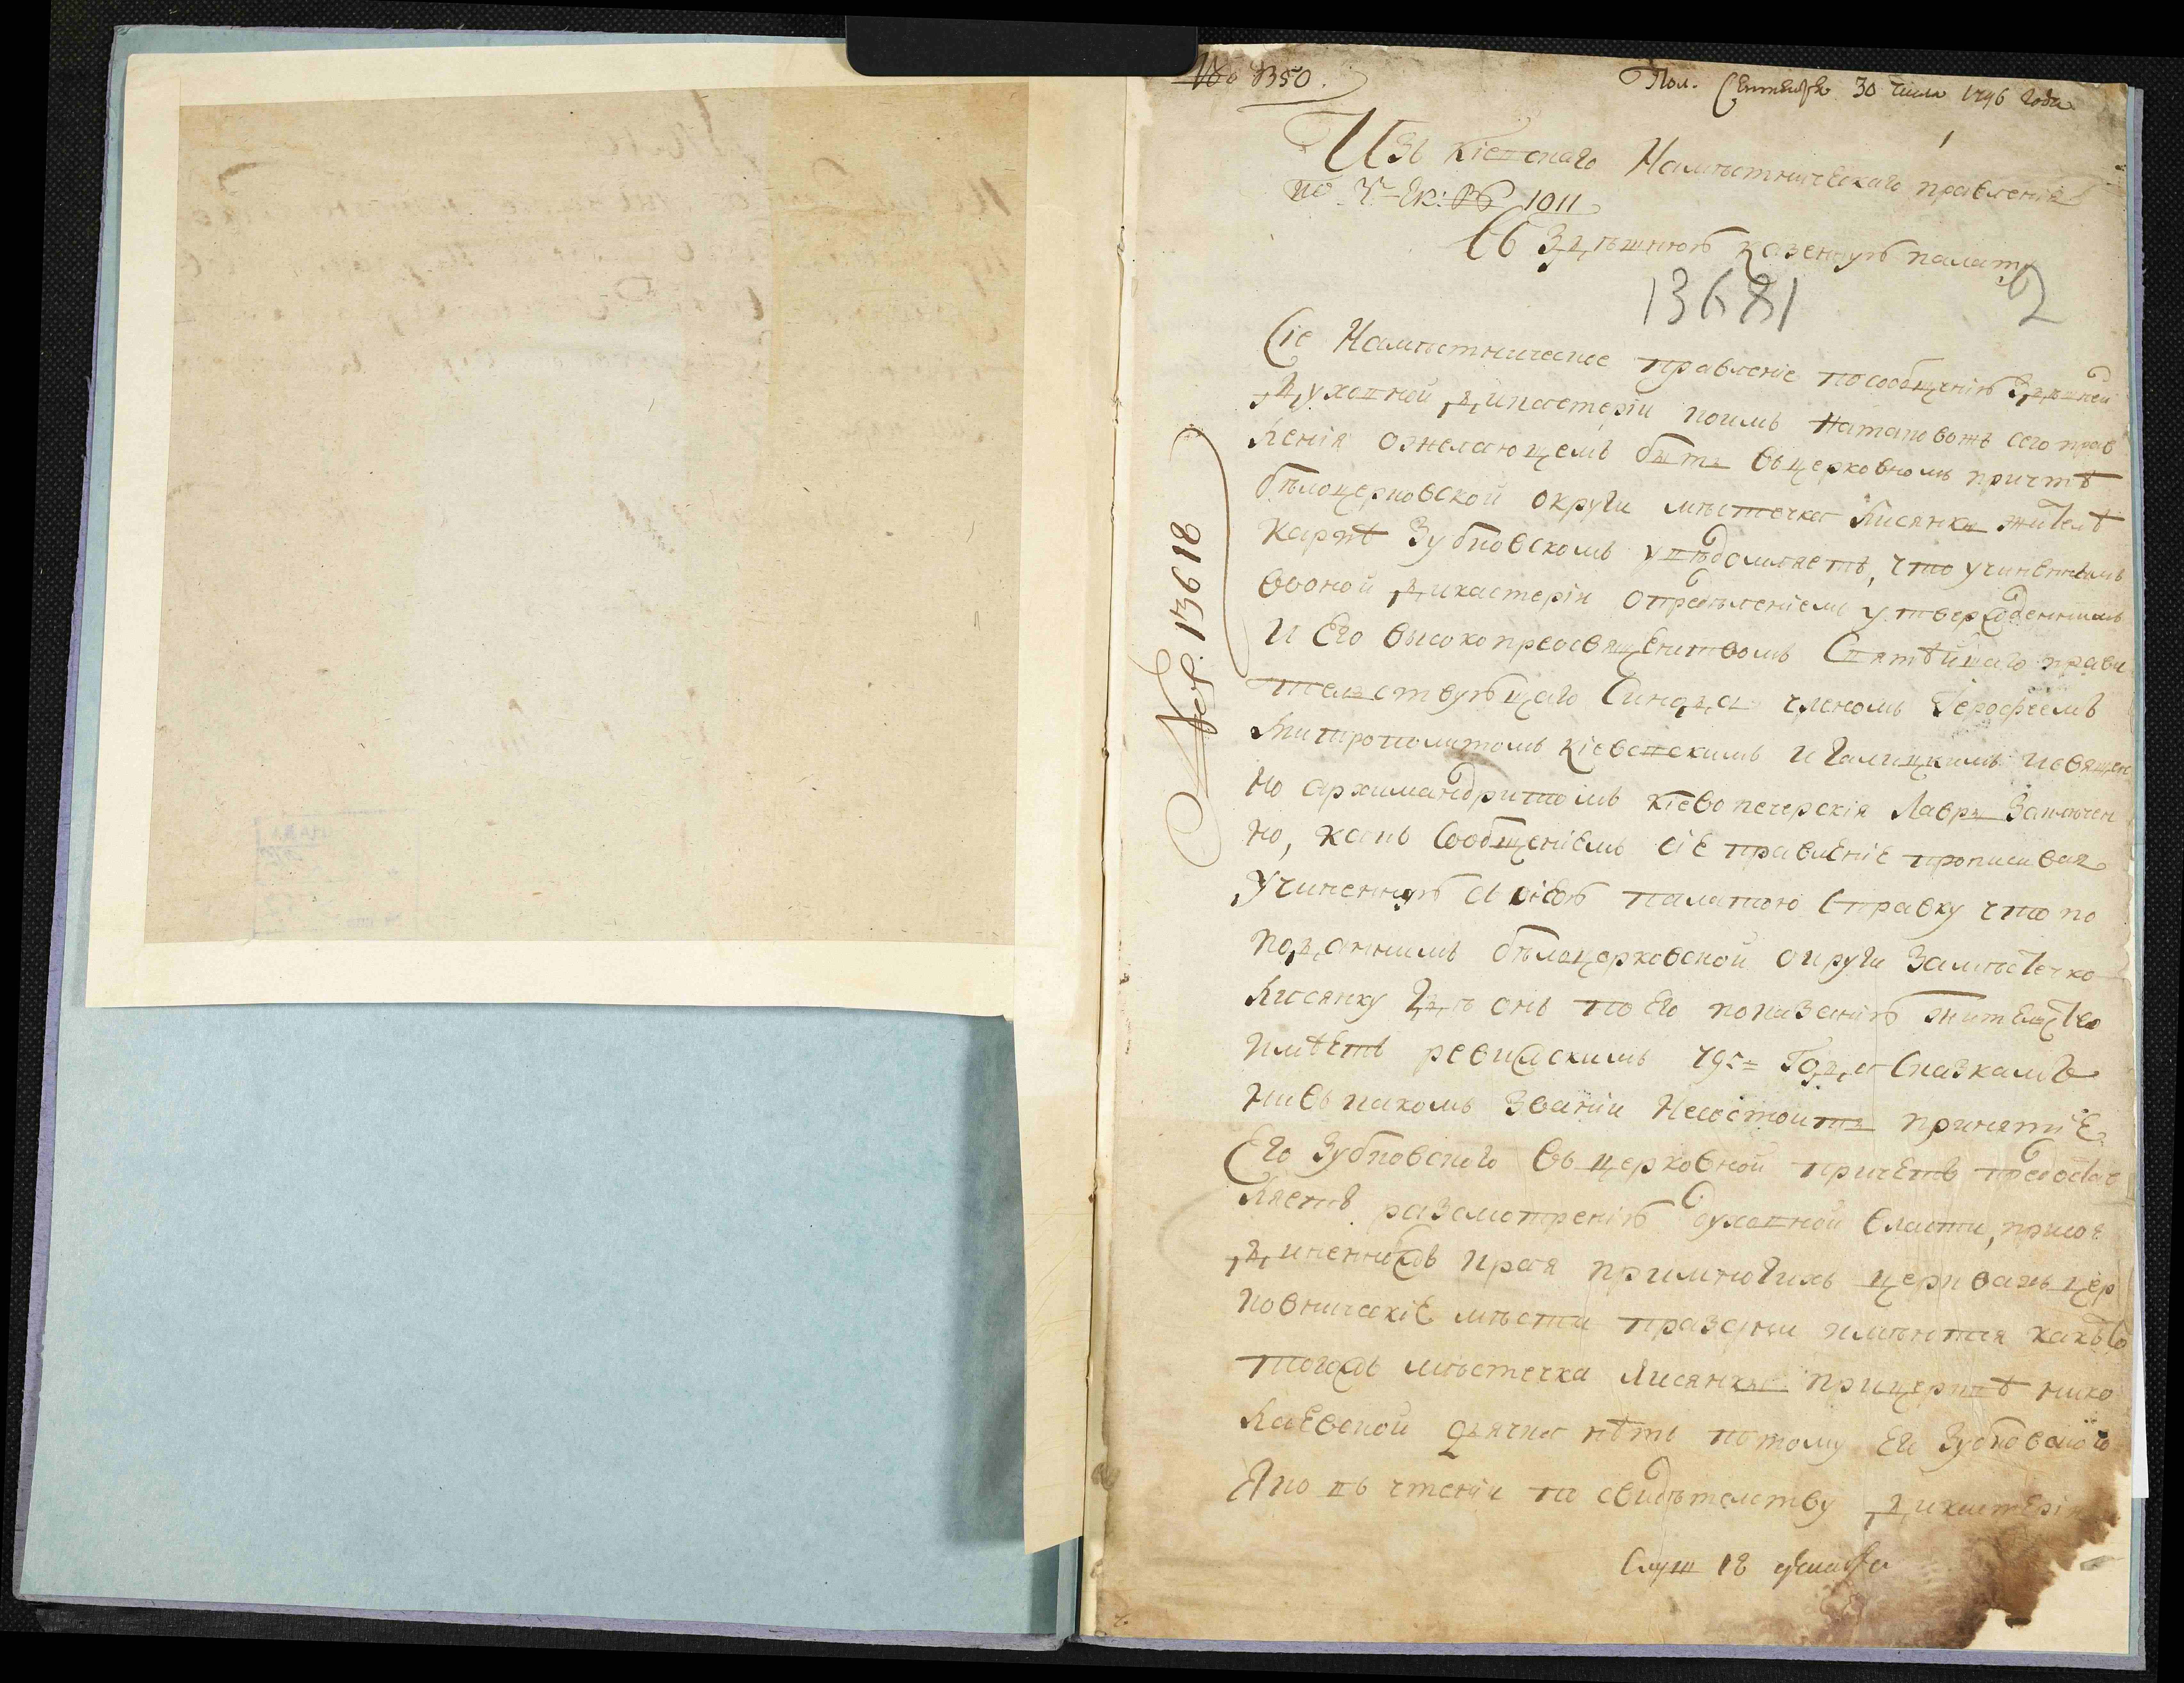 Пол. Сентября 30 числа 1796 года
Изъ Кіевскаго Намѣстническаго правленія
1011
Въ Здѣшнюю Казенную палату
13681 2
Сіе Намѣстническое правленіе посообщенію Здѣшней
Духовной Дикастеріи коимъ сего прав
ленія ожелающемъ быть въцерковномъ причтѣ
бѣлоцерковской округи мѣстечка Лисянки жителѣ
Карпѣ Зубковскомъ увѣдомляетъ, что учиненнымъ
воной Дикастеріи опредѣленіемъ утвержденнымъ
И Его высокопреосвященствомъ Святѣйшаго прави
тельствующаго Синода членомъ Герофеемъ
Митрополитомъ Кіевскимъ и Галицкимъ исвящен
но архимандритомъ Кіевопечерскія Лавры Заключен
но, какъ сообщеніемъ сіе правленіе прописивая
Учиненную палатою справку что по
поданнимъ бѣлоцерковской округи Замѣстечко
Лисянку гдѣ онъ по Его показанію жителство
Имѣетъ ревижскимъ 795 Года сказкамъ
нивъ какомъ званіи Несостоитъ принятіе
Его Зубковского въ церковной причетъ предостав
ляетъ разсмотренію духовной власти, присое
диненнаго края примногихъ церквахъ цер
ковническіе мѣста праздни имѣются какъ то
тогожъ мѣстечка Лисянки прицерквѣ нико
лаевской дячка нѣтъ потому Его Зубковского
Яко въ чтеніи по свидѣтелству Дикастеріи
Слуш 18
13618